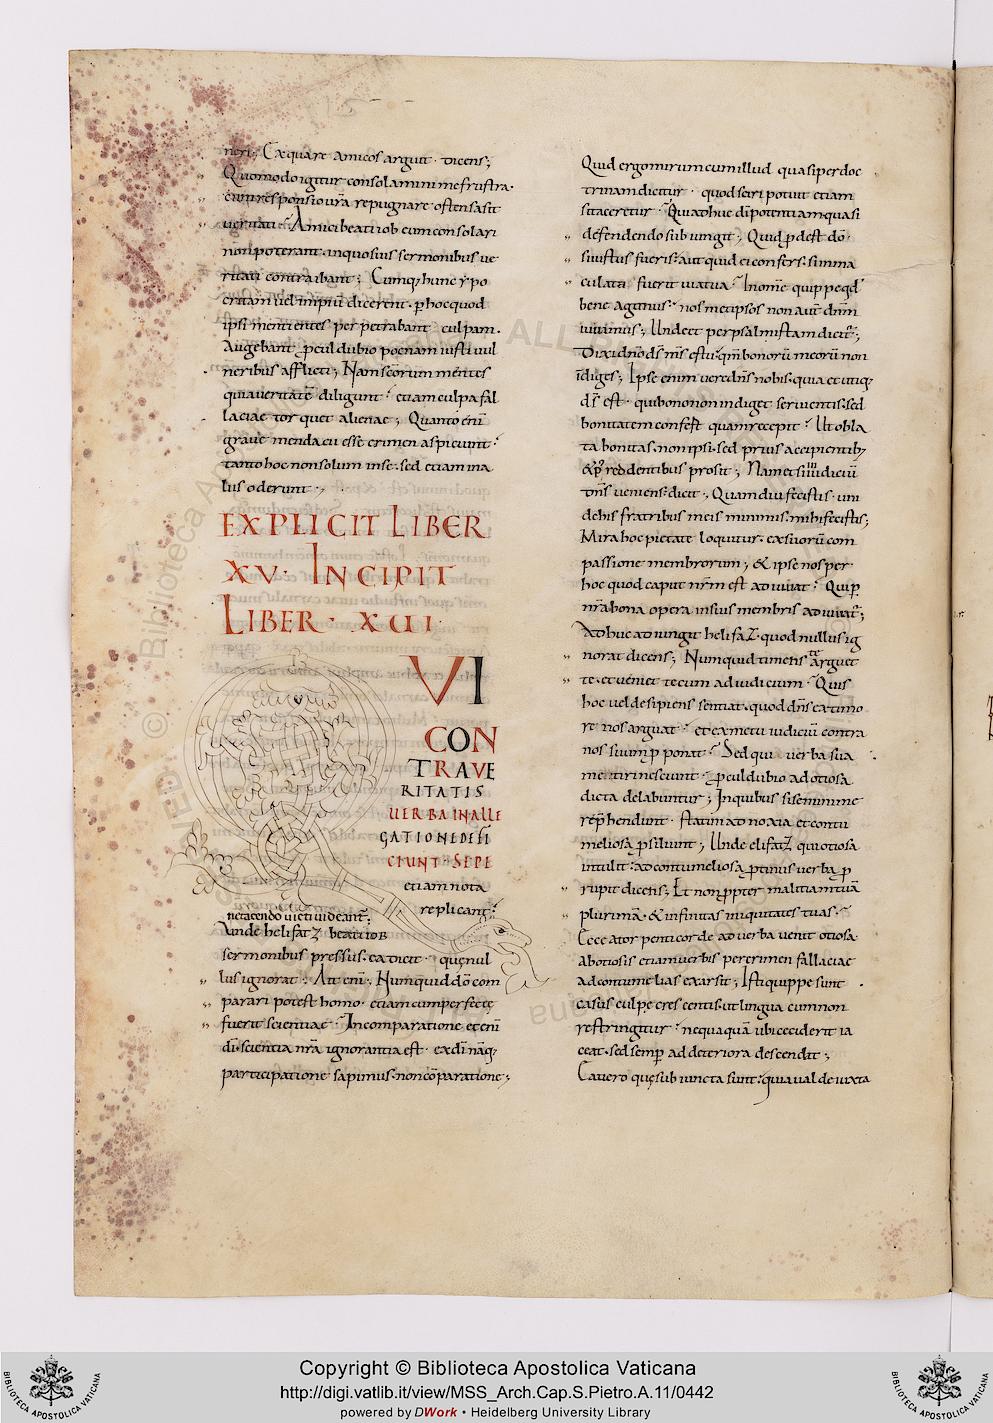 neri; Ex quare amicos arguit. dicens;
Quomodo igitur consolamini me frustra.
cum responsio ura repugnare ostensa sit
ueritati; Amici beati iob eum consolari
non poterant. in quo suis sermonibus ue
ritati contraibant; Cumq; hunc ypo
critam uel impiu dicerent. p hoc quod
ipsi mentientes perpetrabant culpam.
Augebant pculdubio poenam iusti uul
neribus afflicti; Nam scorum mentes
quia ueritate diligunt. etiam culpa fal
laciae torquet alienae; Quanto eni
graue mendacii esse crimen aspiciunt.
tanto hoc non solum in se. sed etiam in a
liis oderunt;
EXPLICIT LIBER
XV. INCIPIT
LIBER. XUI
VI
CON
TRA VE
RITATIS
UERBA IN ALLE
GATIONE DEFI
CIUNT. SEPE
etiam nota
replicant.
ne tacendo uicti uideant;
Unde helifatz beati iob
sermonibus pressus. ea dicit. que nul
lus ignorat; Ait eni; Numquid do com
parari potest homo. etiam cum perfecte
fuerit scientiae; In comparatione eteni
di. scientia nra ignorantia est. ex di naq;
participatione sapimus. non coparatione;
Quid ergo mirum cum illud quasi per doc
trinam dicitur. quod sciri potuit etiam
si taceretur. Qui adhuc di potentiam quasi
defendendo subiungit; Quid pdest do.
si iustus fueris. aut quid ei confers. si imma
culata fuerit uia tua. In ome quippe qd
bene agimus. nosmetipsos non aut dnm
iuuamus; Unde et per psalmistam dicitr;
Dixi dno ds ms es tu. qm bonoru meoru non
idiges; Ipse enim uere dns nobis. quia et utiq;
ds est. qui bono non indiget seruientis. sed
bonitatem confert quam recepit. Ut obla
ta bonitas. non ipsi. sed prius accipientib;
& p reddentibus prosit; Nam et si in iudiciu
dns ueniens. dicit; Quamdiu fecistis uni
de his fratribus meis minimis. mihi fecistis;
Mira hoc pietate loquitur. ex suoru com
passione membrorum; & ipse nos per
hoc quod caput nrm est adiuuat. Qui p
nra bona opera in suis membris adiuuatr;
Adhuc adiungit helifaz. quod nullus ig
norat dicens; Numquid timens arguet
te. et ueniet tecum ad iudicium. Quis
hoc uel desipiens sentiat. quod dns ex timo
re nos arguat. et ex metu iudiciu contra
nos suum pponat. Sed qui uerba sua
metiri nesciunt. pculdubio ad otiosa
dicta delabuntur; In quibus si se minime
reprehendunt. statim ad noxia et contu
meliosa psiliunt; Unde elifatz qui otiosa
intulit. ad contumeliosa ptinus uerba p
rupit dicens; Et non ppter malitiam tua
plurima. & infinitas iniquitates tuas.
Ecce a torpenti corde ad uerba uenit otiosa.
ab otiosis etiam uerbis per crimen fallaciae
ad contumelias exarsit; Isti quippe sunt
casus culpe crescentis. ut lingua cum non
restringitur. nequaquam ubi ceciderit ia
ceat. sed semp ad deteriora descendit;
Ea uero que subiuncta sunt. quia ualde iuxta
Copyright © Biblioteca Apostolica Vaticana
http://digi.vatlib.it/view/MSS_Arch.Cap.S.Pietro.A.11/0442
powered by DWork • Heidelberg University Library
BIBLIOTECA APOSTOLICA VATICANA
BIBLIOTECA APOSTOLICA VATICANA